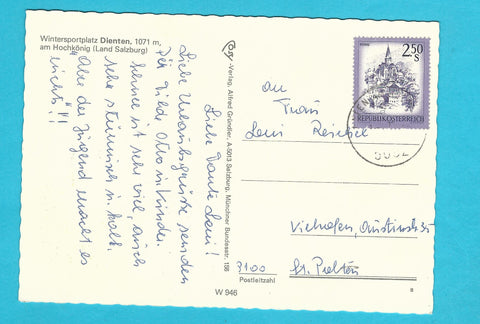 Wintersportplatz Dienten, 1071 m,
am Hochkönig (Land Salzburg)
Liebe Tante Loni!
Liebe Urlaubsgrüße senden
Dir Trude, Otto u. Kinder.
Schnee ist sehr viel, auch
sehr stürmisch u. kalt.
"Aber der Jugend macht es
nichts"!!
Cosy-Verlag, Alfred Gründler, A-5013 Salzburg, Münchner Bundesstr. 156
W 946
2.50
S
REPUBLIK ÖSTERREICH
An
Frau
Loni
Viehofen,
3100 St. Pölten
Postleitzahl
8